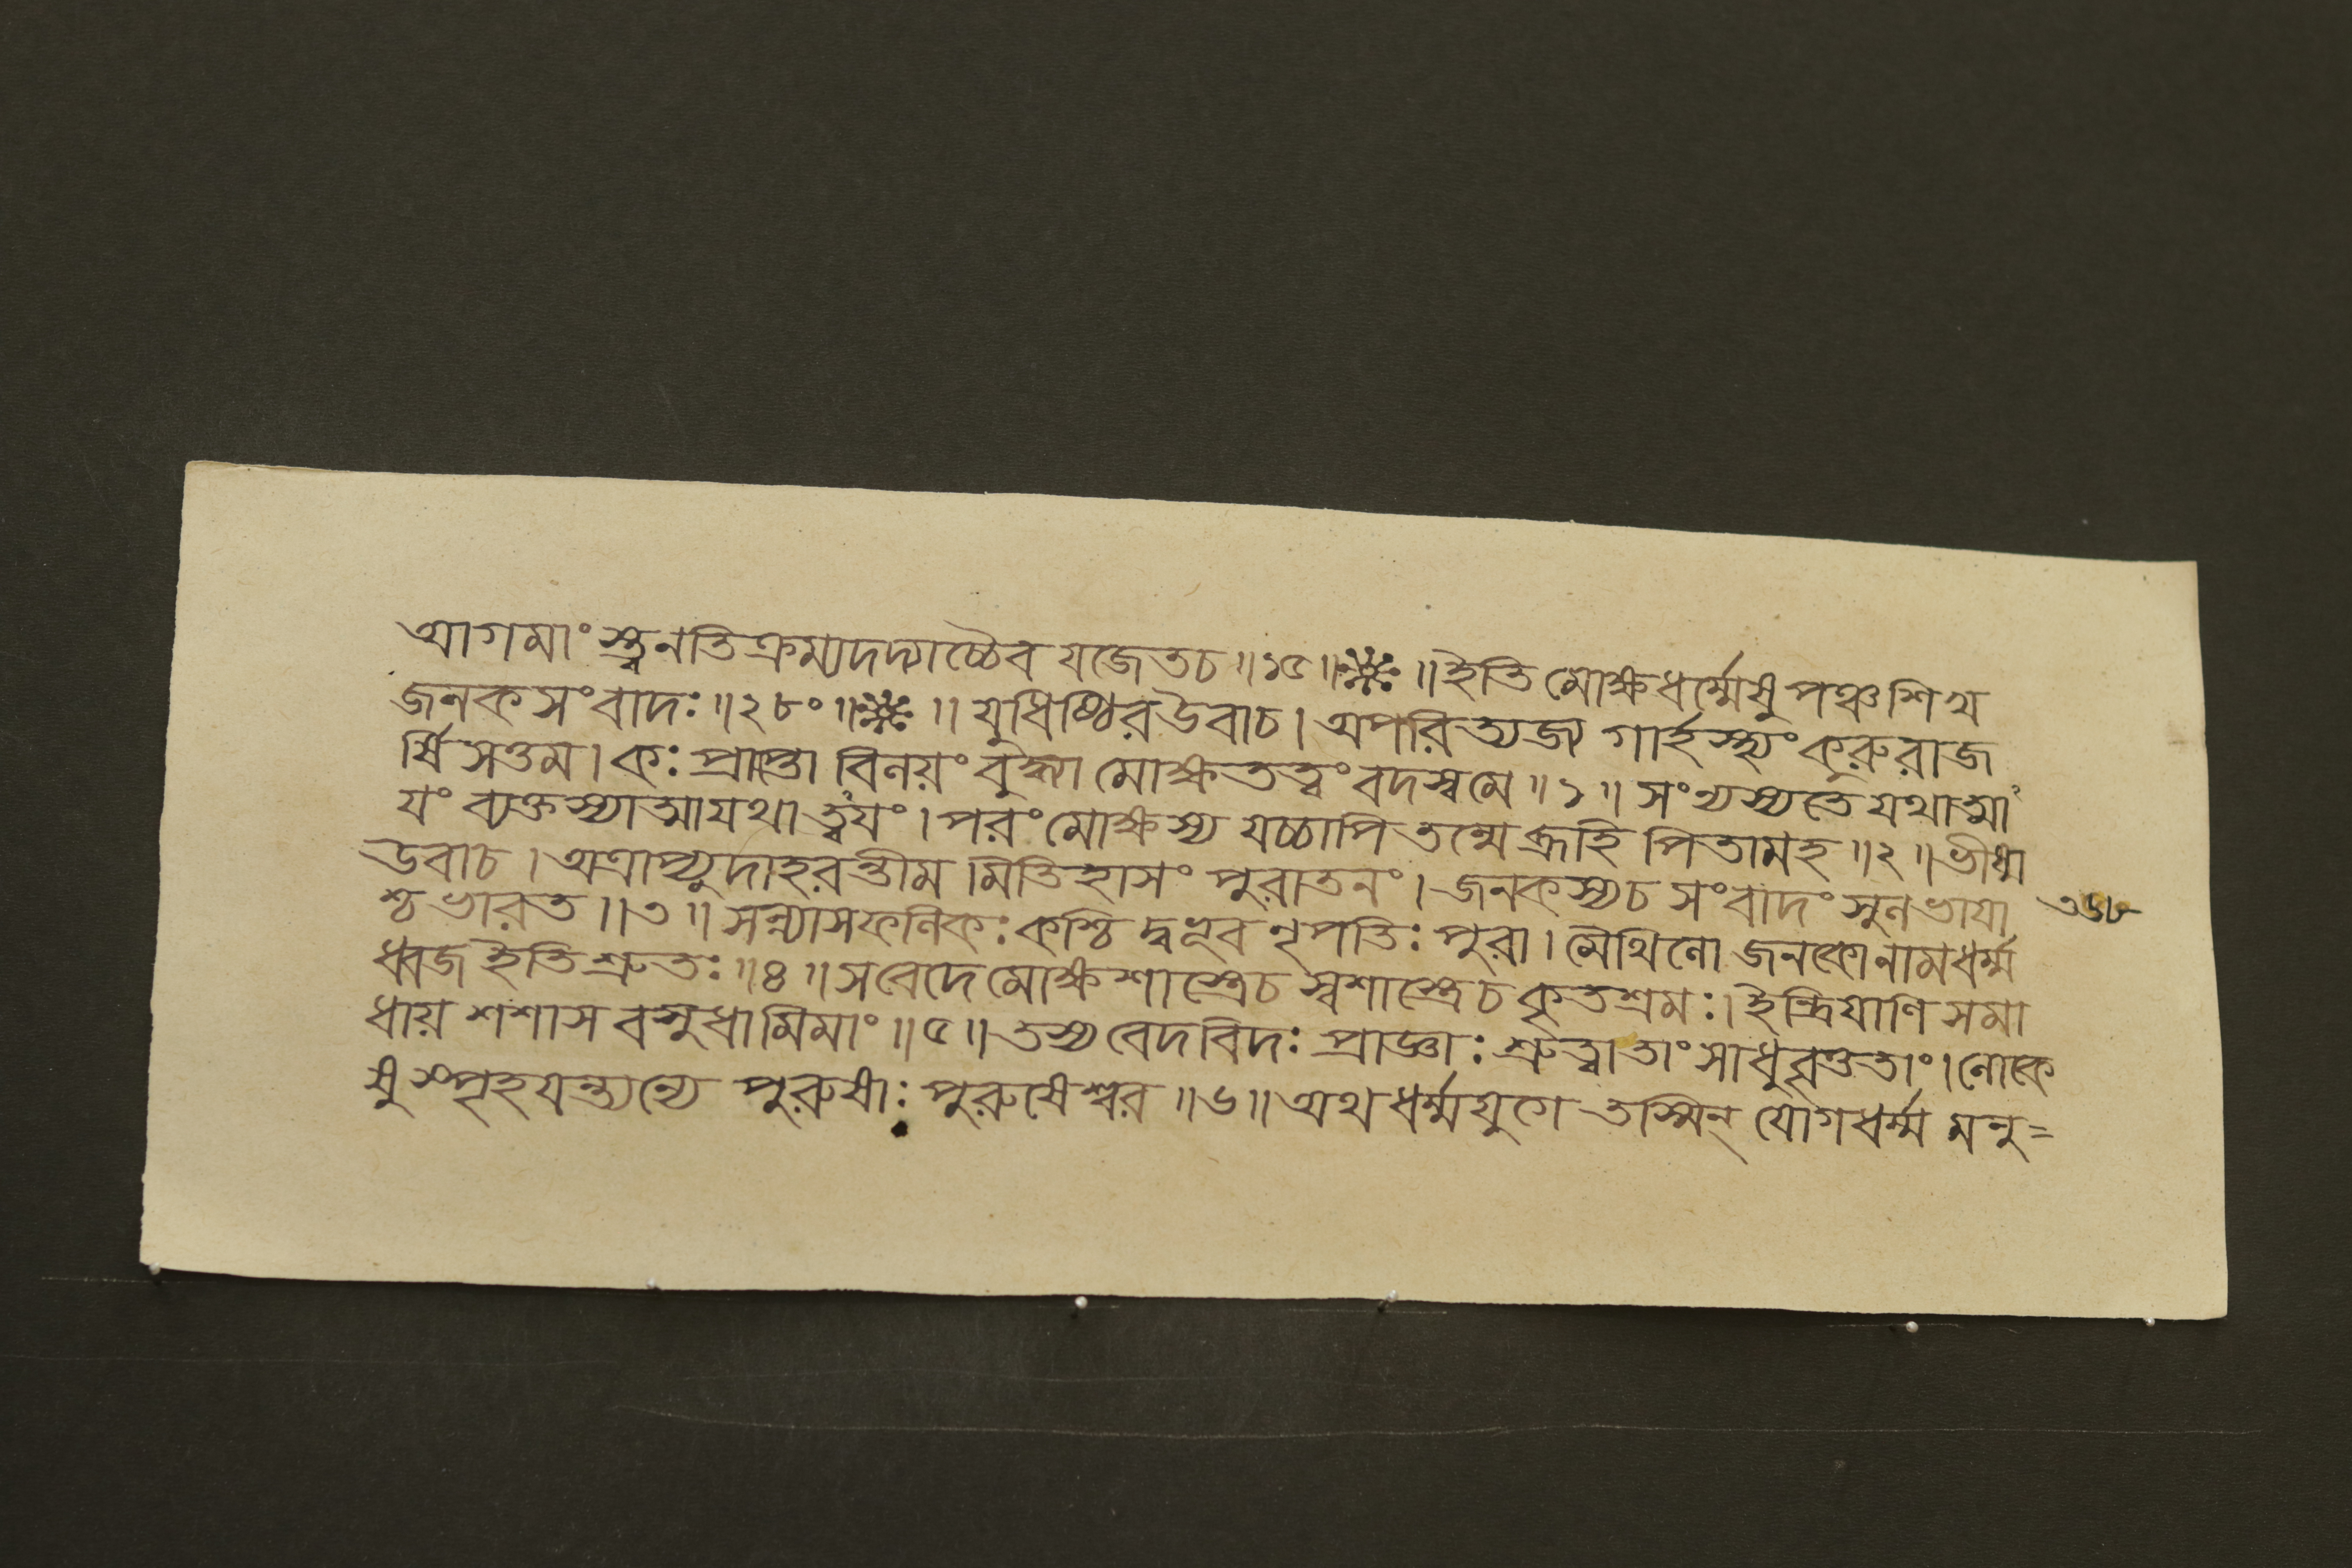 আগমাংস্ত্বনতিক্রম্যদদ্যাচ্চৈব যজেতচ॥১৫॥ ॥ইতি মোক্ষধর্ম্মেষু পঞ্চশিখ
জনকসংবাদঃ॥২৮০॥ ॥যুধিষ্ঠিরউবাচ।অপরিত্যজ্য গার্হস্থ্যংকুরুরাজ
র্ষিসত্তম।কঃপ্রাপ্তো বিনয়ংবুদ্ধ্যা মোক্ষতত্ত্বংবদস্বমে॥১॥সংন্যস্যতেযথাত্মাং
যংব্যক্তস্যাত্মাযথাত্ত্বযং।পরংমোক্ষস্য যচ্চাপি তন্মেব্রূহি পিতামহ॥২॥ভীষ্ম
উবাচ।অত্রাপ্যুদাহরন্তীম মিতিহাসং পুরাতনং।জনকস্যচ সংবাদং সুলভাযা ৩৬৮
শ্চভারত॥৩॥সন্ন্যাসফলিকঃকশ্চি দ্বভূব নৃপতিঃ পুরা।মৈথিলো জনকোনামধর্ম্ম
ধ্বজ ইতিশ্রুতঃ॥৪॥সবেদেমোক্ষশাস্ত্রেচ স্বশাস্ত্রেচ কৃতশ্রমঃ।ইন্দ্রিযাণি সমা
ধায় শশাস বসুধামিমাং॥৫॥তস্য বেদবিদঃ প্রাজ্ঞাঃ শ্রুত্বাতাংসাধুবৃত্ততাং।লোকে
ষুস্পৃহযন্ত্যন্যে পুরুষাঃ পুরুষেশ্বর॥৬॥অথ ধর্ম্মযুগে তস্মিন্ যোগধর্ম্ম মনু=